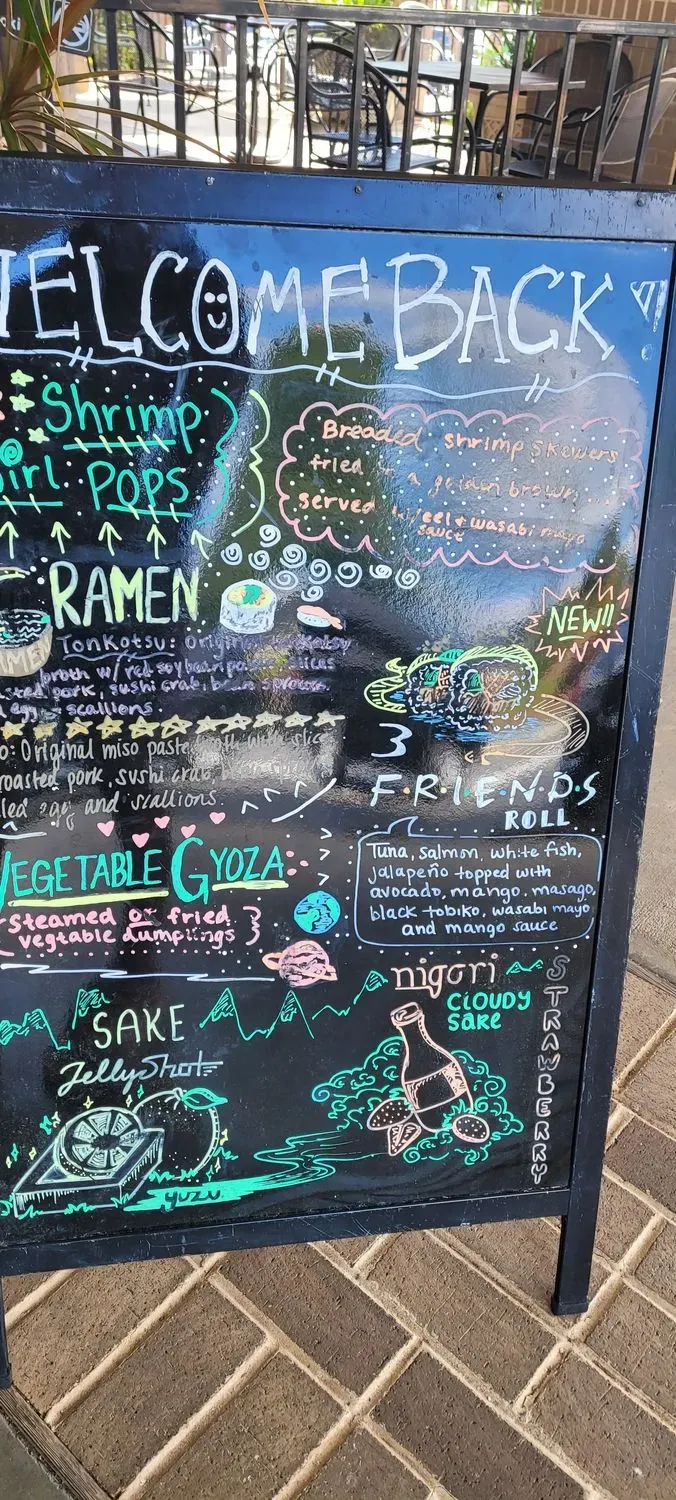 WELCOME BACK
Shrimp
Girl POPS
Breaded shrimp skewers
fried a golden brown
served w/ eel + wasabi mayo
sauce
RAMEN
NEW!!
TonKotsu: Original
broth w/ red soybean paste, slices
roasted pork, sushi crab, bean sprouts,
egg, scallions
Original miso paste broth with slices
roasted pork, sushi crab,
and scallions.
3
F·R·I·E·N·D·S
ROLL
Tuna, salmon, white fish,
jalapeño topped with
avocado, mango, masago,
black tobiko, wasabi mayo
and mango sauce
VEGETABLE GYOZA
{steamed or fried
vegtable dumplings}
nigori
CLOUDY
sake
STRAWBERRY
SAKE
Jelly Shots
yuzu